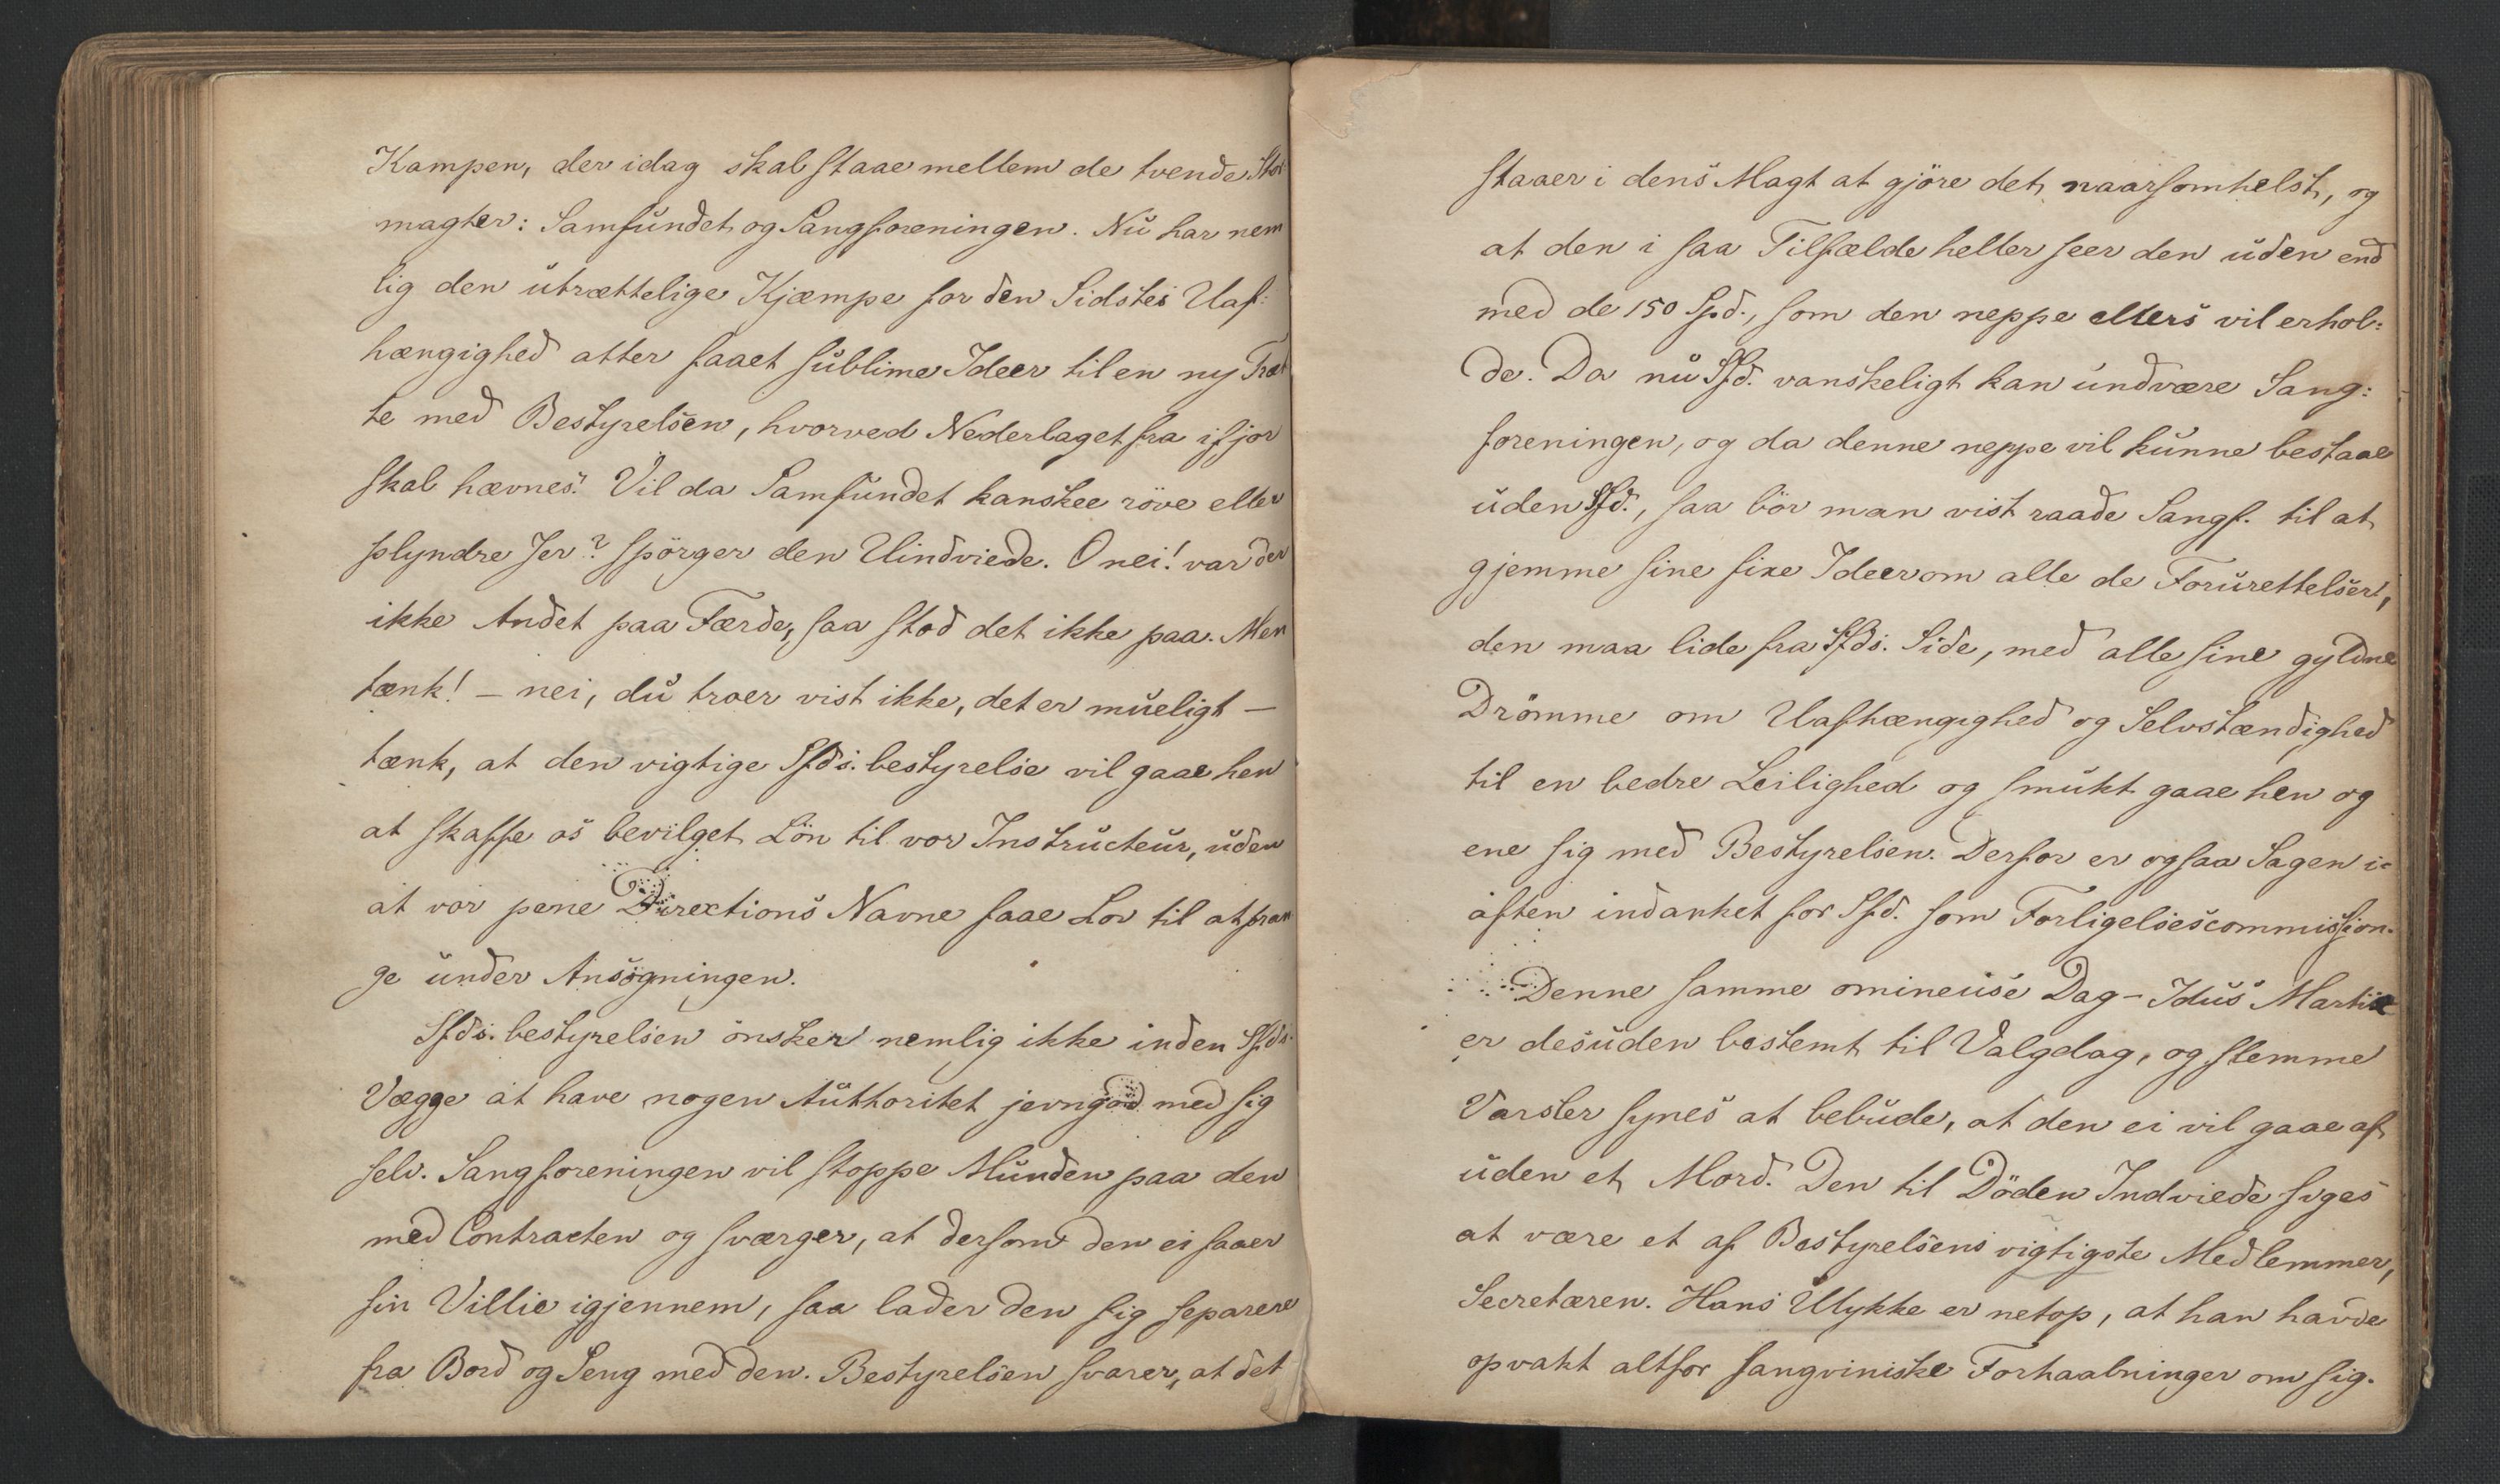 Kampen, der idag skal staae mellem de tvende Stor
magter: Samfundet og Sangforeningen. Nu har nem
lig den utrættelige Kjæmpe for den Sidstes Uaf:
hængighed atter faaet sublime Ideer til en ny Træt
te med Bestyrelsen, hvorved Nederlaget fra ifjor
skal hævnes. Vil da Samfundet kanskee röve eller
plyndre Jer? spörger den Uindviede. O nei! var der
ikke Andet paa Færde, saa stod det ikke paa. Men
tænk! - nei, du troer vist ikke, det er mueligt -
tænk, at den vigtige Sfds. bestyrelse vil gaae hen
at skaffe os bevilget Lön til vor Instructeur, uden
at vor pene Directions Navne faae Lov til at pran
ge under Ansögningen.
Sfds. bestyrelsen önsker nemlig ikke inden Sfds.
Vægge at have nogen Authoritet jevngod med sig
selv. Sangforeningen vil stoppe Munden paa den
med Contracten og sværger, at dersom den ei faaer
sin Villie igjennem, saa lader den sig separere
fra Bord og Seng med den. Bestyrelsen svarer, at det
staaer i dens Magt at gjöre det naarsomhelst, og
at den i saa Tilfælde heller seer den uden end
med de 150 Spd., som den neppe ellers vil erhol:
de. Da nu Sfd. vanskeligt kan undvære Sang:
foreningen, og da denne neppe vil kunne bestaae
uden Sfd., saa bör man vist raade Sangf. til at
gjemme sine fixe Ideer om alle de Forurettelser,
den maa lide fra Sfds. Side, med alle sine gyldne
Drömme om Uafhængighed og Selvstændighed
til en bedre Leilighed og smukt gaae hen og
ene sig med Bestyrelsen. Derfor er ogsaa Sagen i-
aften indanket for Sfd. som Forligelsescommission.
Denne samme omineuse Dag - Idus Martiæ
er desuden bestemt til Valgdag, og slemme
Varsler synes at bebude, at den ei vil gaae af
uden et Mord. Den til Döden Indviede siges
at være et af Bestyrelsens vigtigste Medlemmer,
Secretæren. Hans Ulykke er netop, at han havde
opvakt altfor sangviniske Forhaabninger om sig.